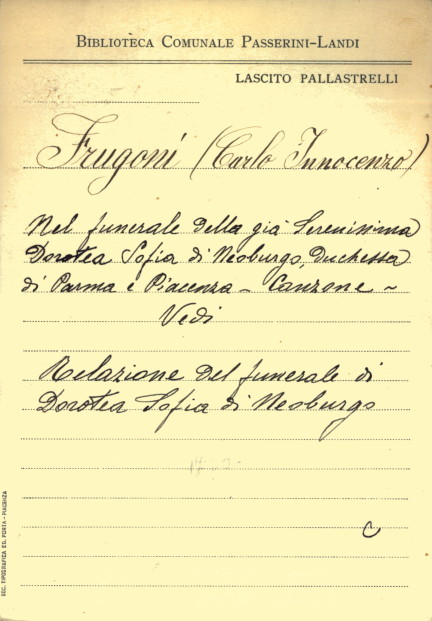 BIBLIOTECA COMUNALE PASSERINI-LANDI
LASCITO PALLASTRELLI
Frugoni (Carlo Innocenzo)
Nel funerale della già Serenissima
Dorotea Sofia di Neoburgo, Duchessa
di Parma e Piacenza - Canzone ~
Vedi
Relazione del funerale di
Dorotea Sofia di Neoburgo
C
SOC. TIPOGRAFICA ED. PORTA - PIACENZA